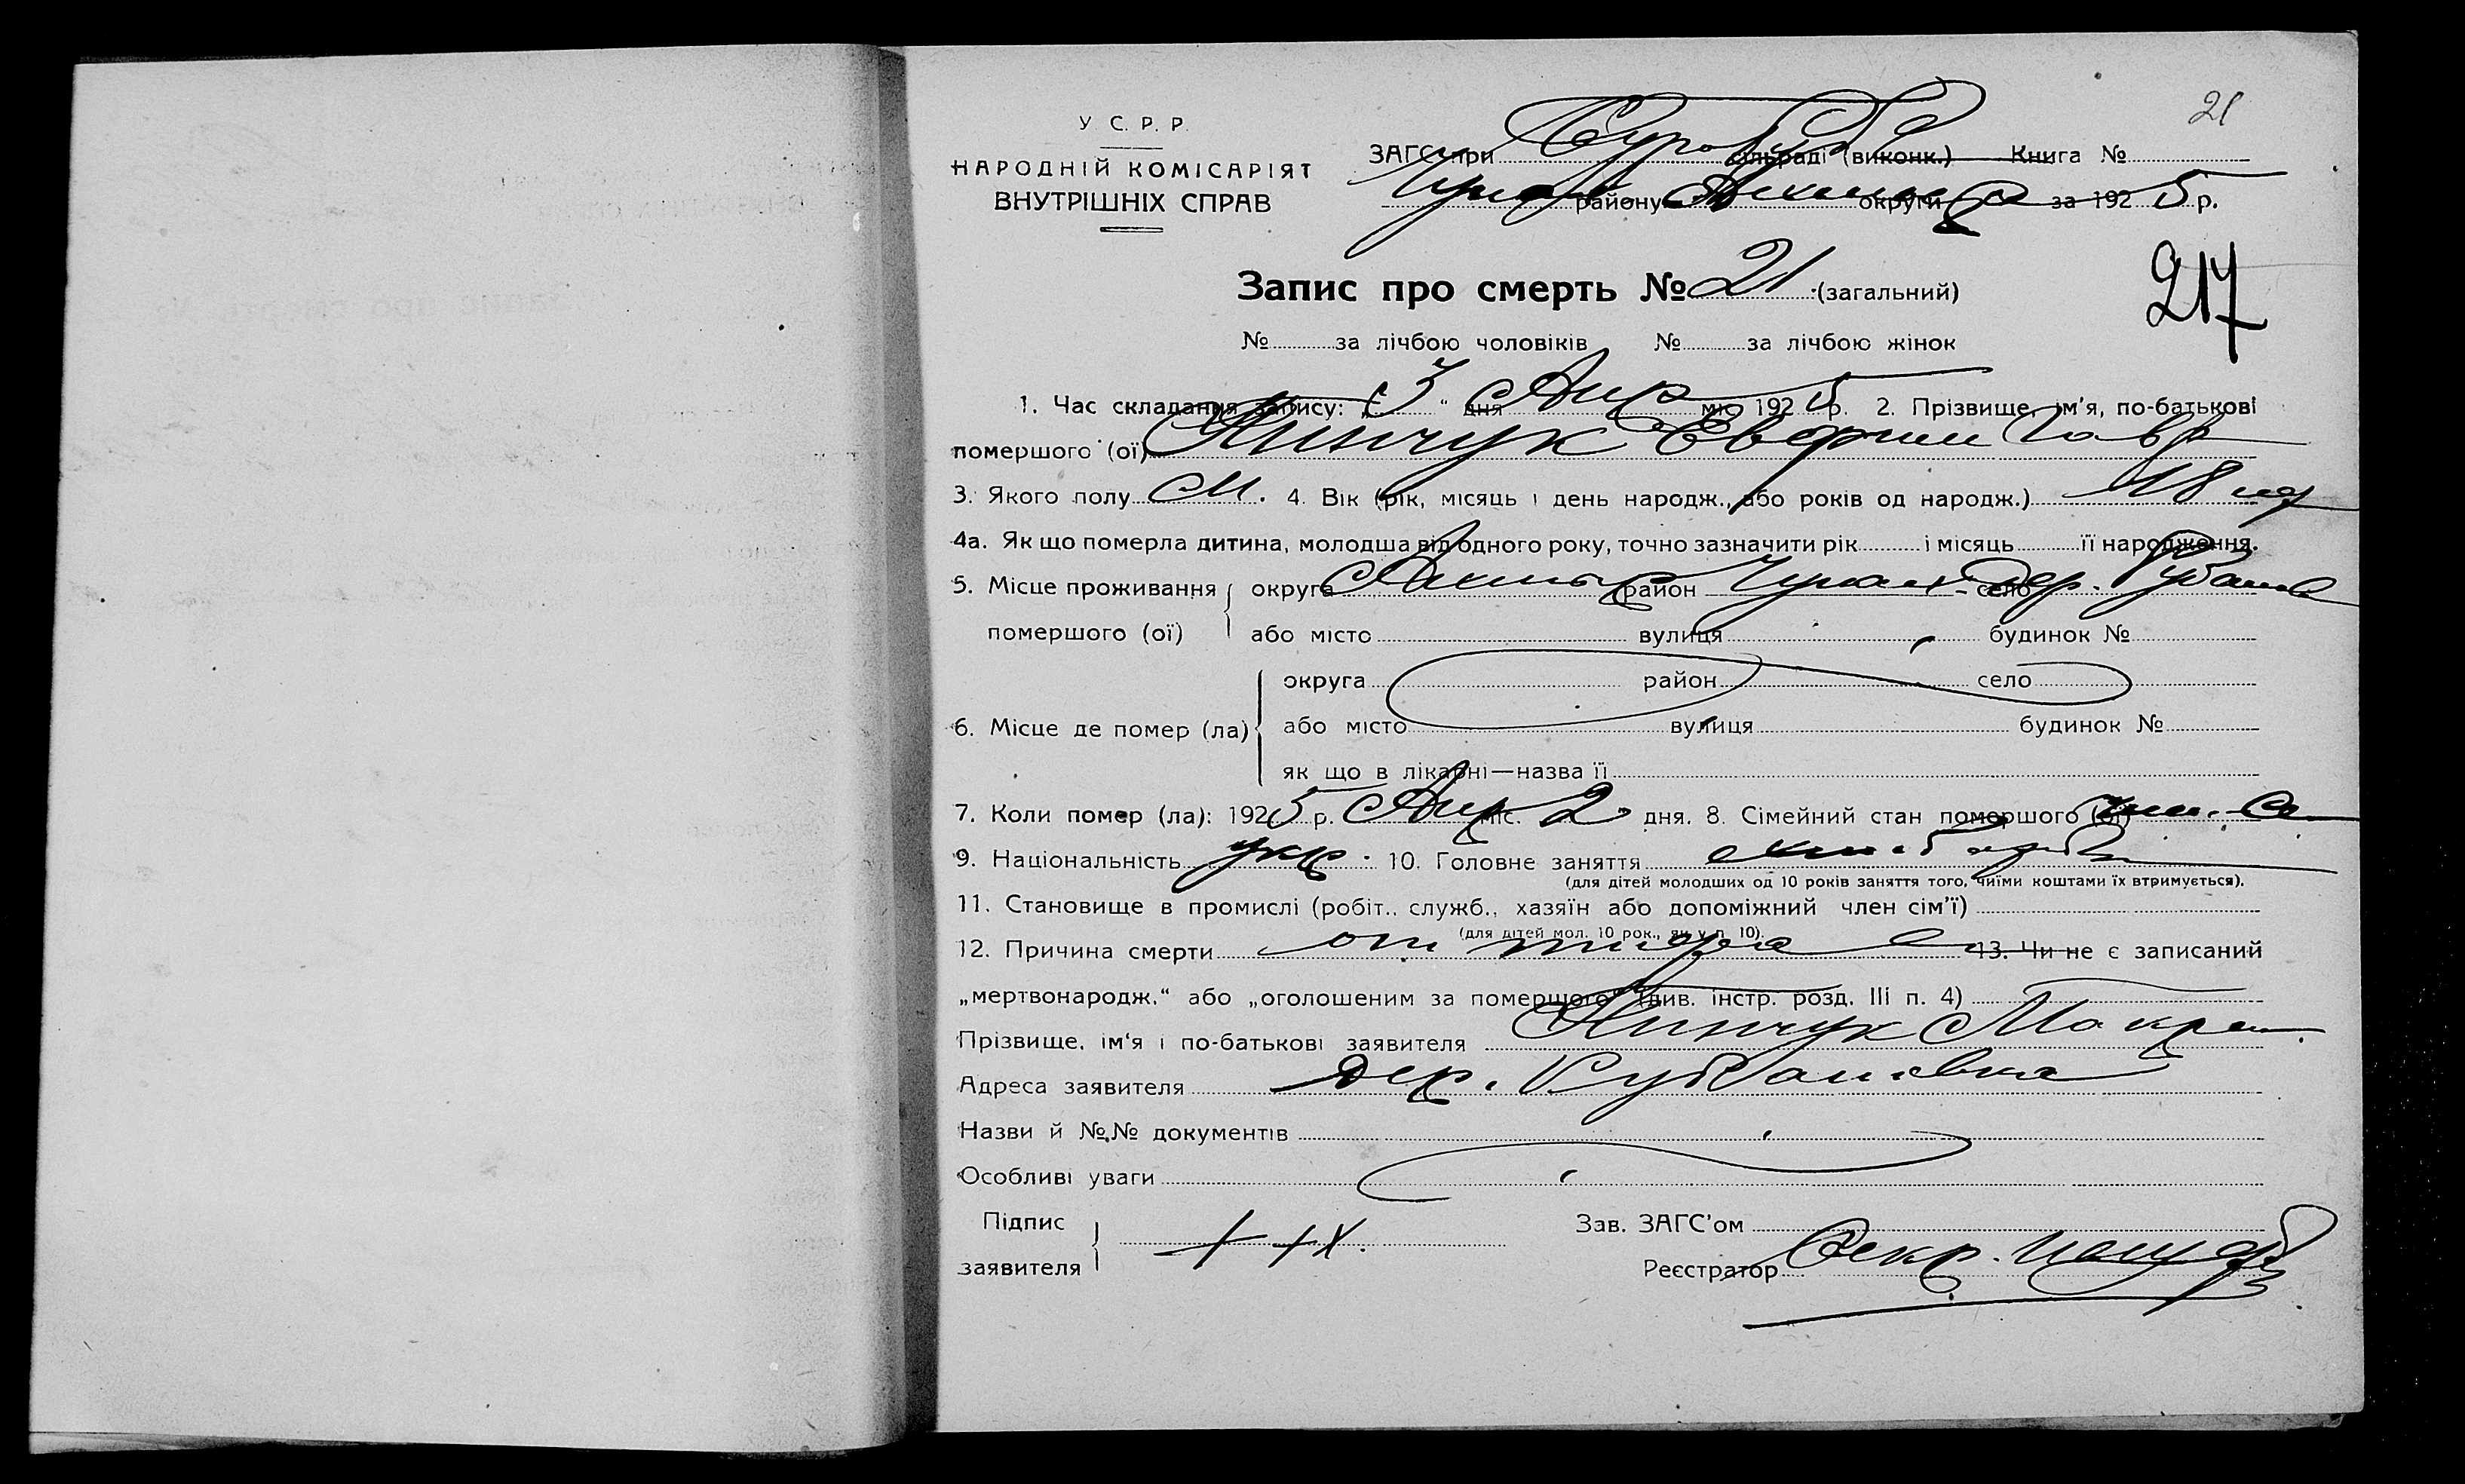 21
У С. Р. Р.
НАРОДНІЙ КОМІСАРІЯТ
ВНУТРІШНІХ СПРАВ
ЗАГС при сільраді (виконк.) Книга №
району округи за 1925 р.
217
Запис про смерть № 21 (загальний)
№ за лічбою чоловіків № за лічбою жінок
1. Час складання запису: „3“ дня Апр міс. 1925 р. 2. Прізвище, ім'я, по-батькові
помершого (ої) Кинчук Гавр
3. Якого полу М. 4. Вік (рік, місяць і день народж., або років од народж.) 48
4а. Як що померла дитина, молодша від одного року, точно зазначити рік і місяць її народження.
5. Місце проживання округа район село дер.
помершого (ої) або місто вулиця будинок №
округа район село
6. Місце де помер (ла) або місто вулиця будинок №
як що в лікарні—назва її
7. Коли помер (ла): 1925 р. Апр міс. 2 дня. 8. Сімейний стан помершого (ої)
9. Національність укр. 10. Головне заняття хлебороб
(для дітей молодших од 10 років заняття того, чиїми коштами їх втримується).
11. Становище в промислі (робіт., служб., хазяїн або допоміжний член сім'ї)
(для дітей мол. 10 рок., як у п. 10).
12. Причина смерти от тифа 13. Чи не є записаний
„мертвонародж.“ або „оголошеним за помершого“ (див. інстр. розд. III п. 4)
Прізвище, ім'я і по-батькові заявителя Кинчук
Адреса заявителя дер.
Назви й №№ документів
Особливі уваги
Підпис
заявителя + + X.
Зав. ЗАГС'ом
Реєстратор Секр.